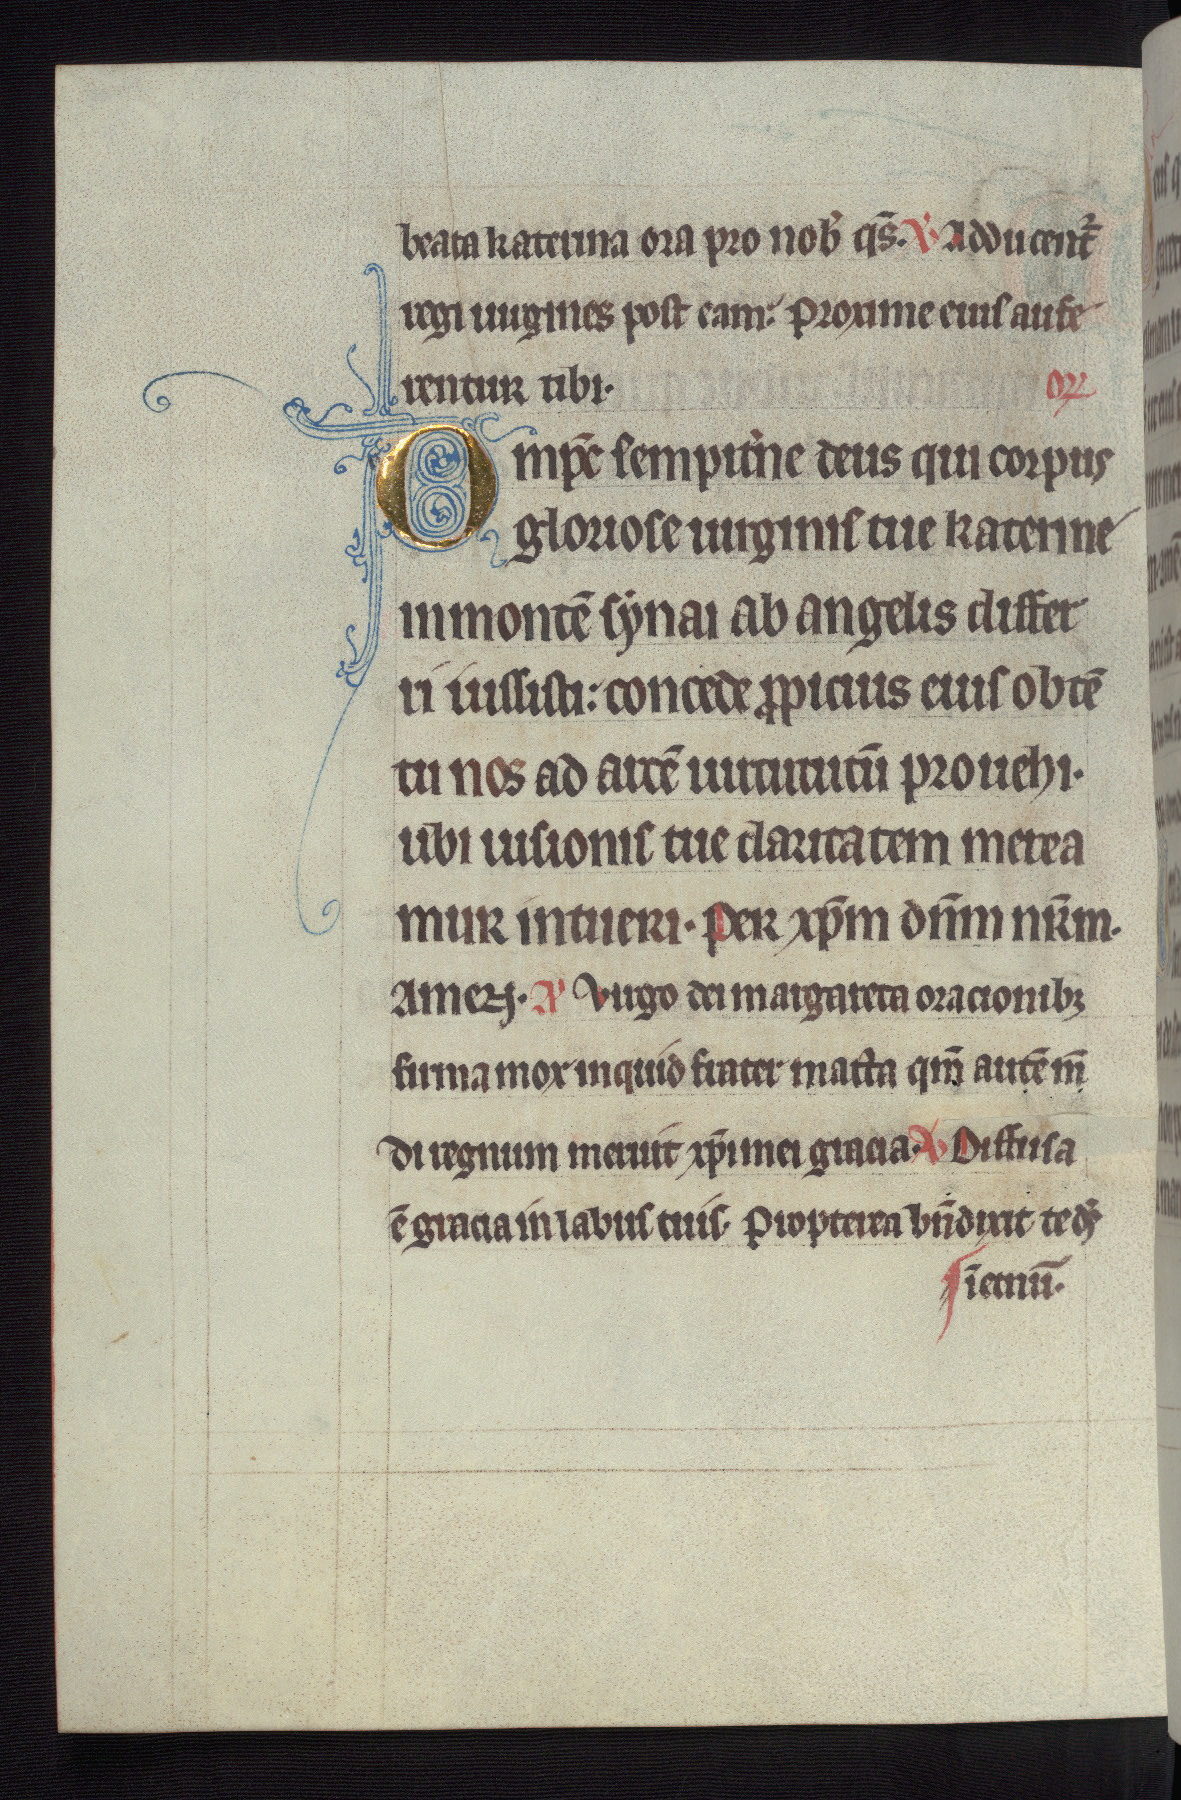 beata katerina ora pro nob̄ qs̄. V̾ Adducent᷑
regi uirgines post eam: Proxime eius aufe
rentur tibi. or̄
Omp̄c sempit̾ne deus qui corpus
gloriose uirginis tue katerine
in montē sẏnai ab angelis differ
ri iussisti: concede ꝓpicius eius obtē
tu nos ad arcē uirtutū prouehi.
ubi uisionis tue claritatem merea
mur intueri. Per xp̄m dn̄m nr̄m.
Amen. A̾ Virgo dei margareta oracionibꝫ
firma mox inquid frater qm̄ autē m̄
di regnum meruit xp̄i mei gracia. V̾ Diffusa
ē gracia in labiis tuis. Propterea bn̄dixit te ds̄
īetnū.